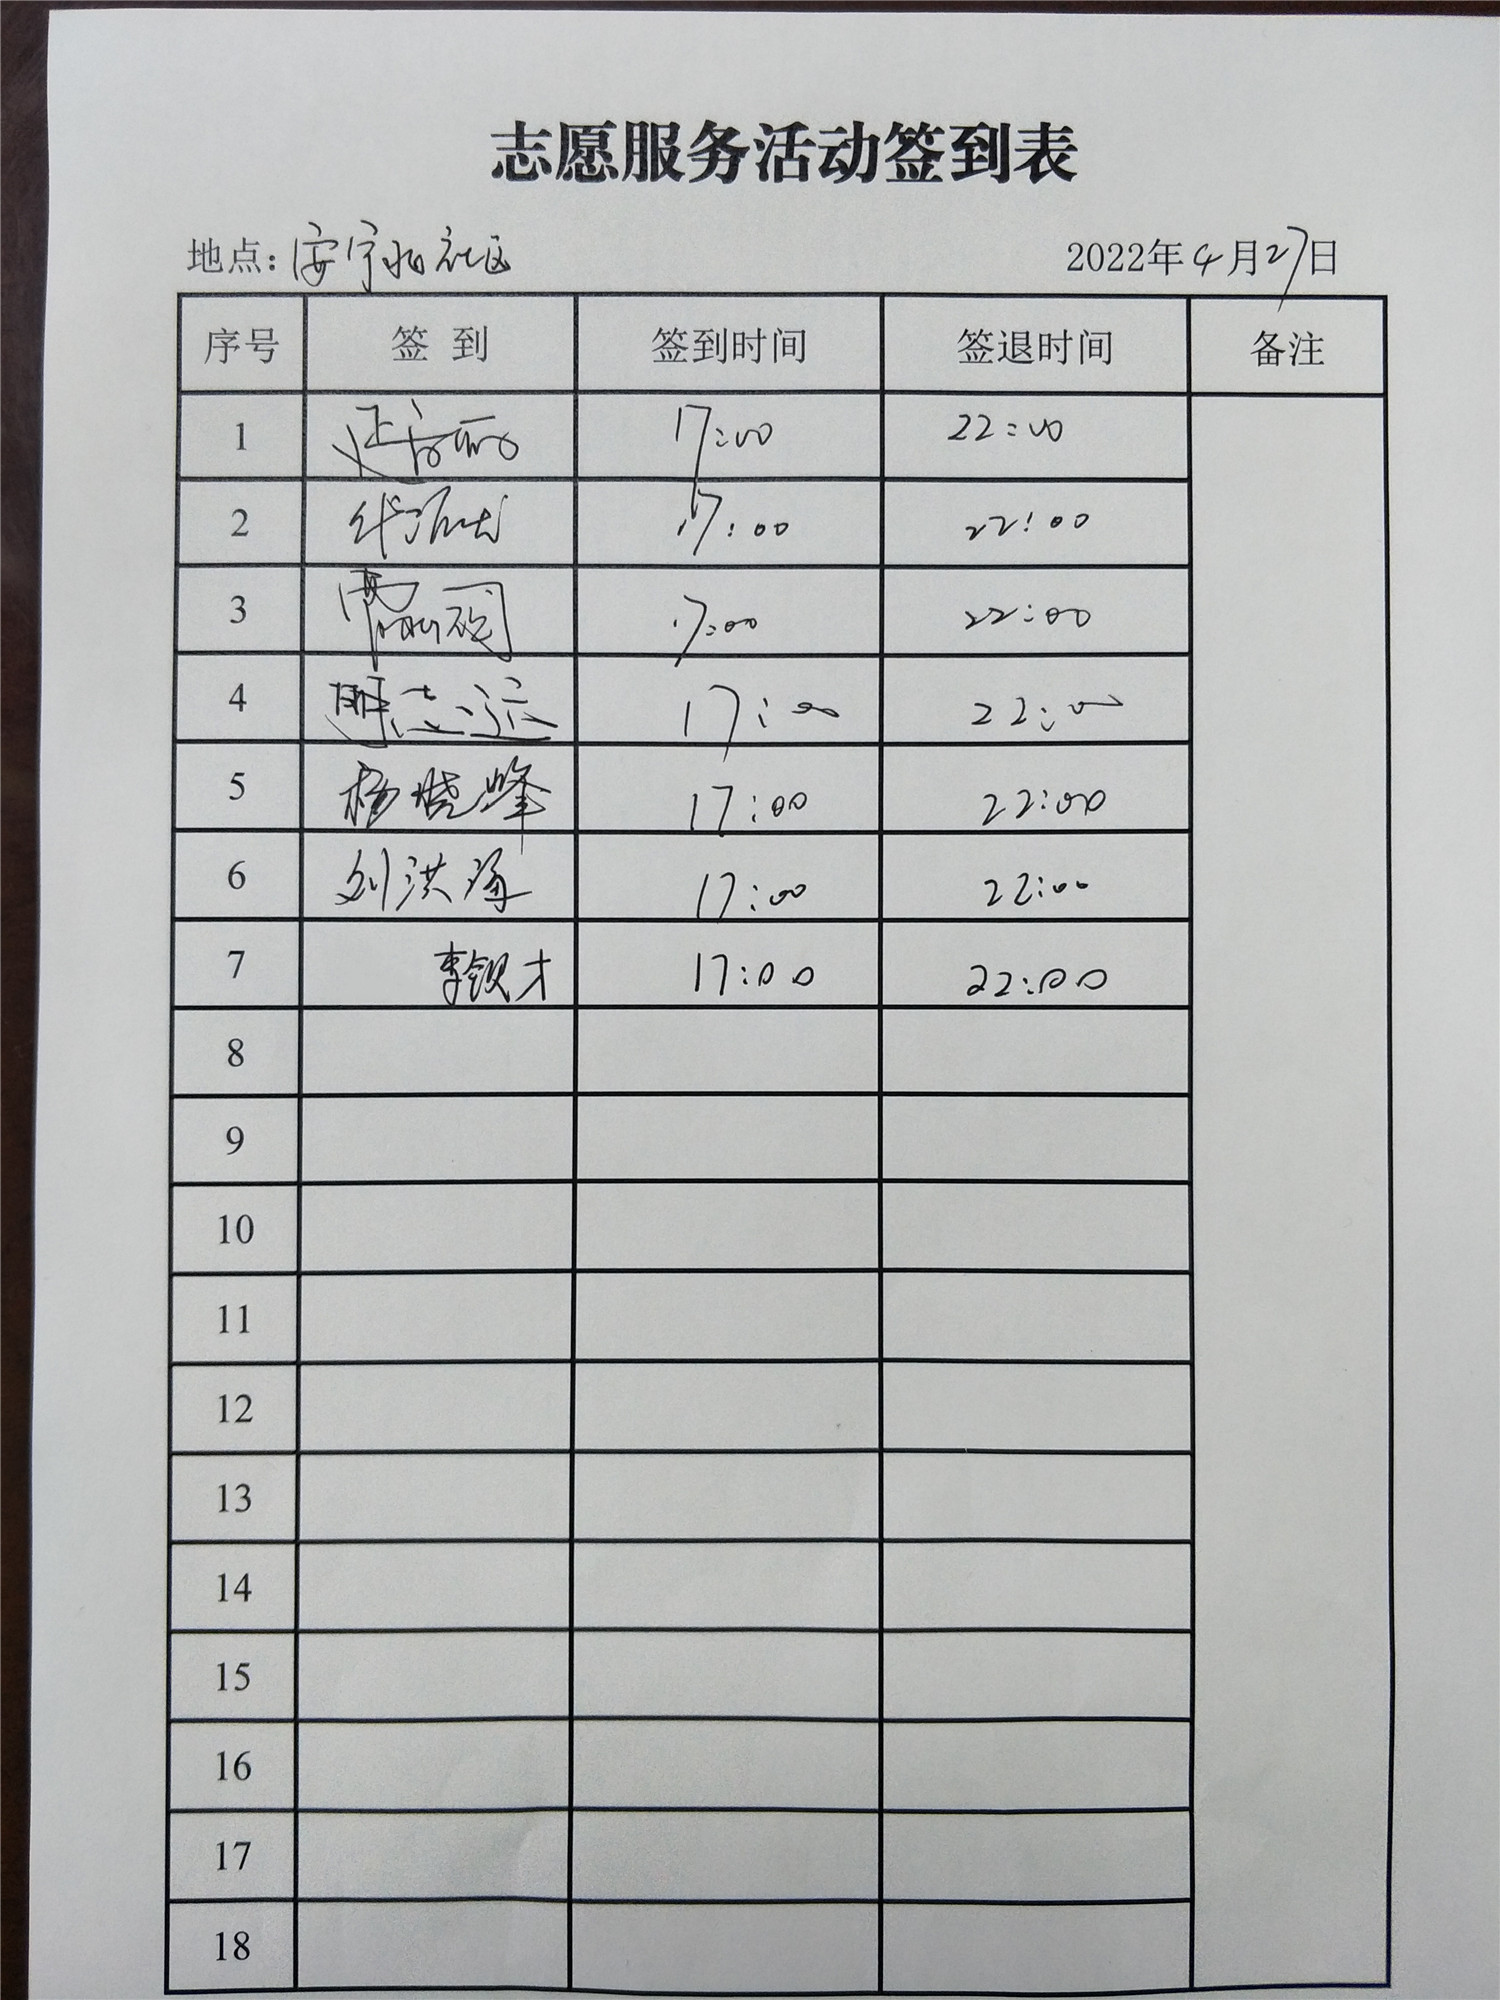 志愿服务活动签到表
地点: 安宁北社区 2022年4月27日
序号 签到 签到时间 签退时间 备注
1 17:00 22:00
2 17:00 22:00
3 17:00 22:00
4 志远 17:00 22:00
5 杨晓峰 17:00 22:00
6 刘洪海 17:00 22:00
7 李银才 17:00 22:00
8
9
10
11
12
13
14
15
16
17
18